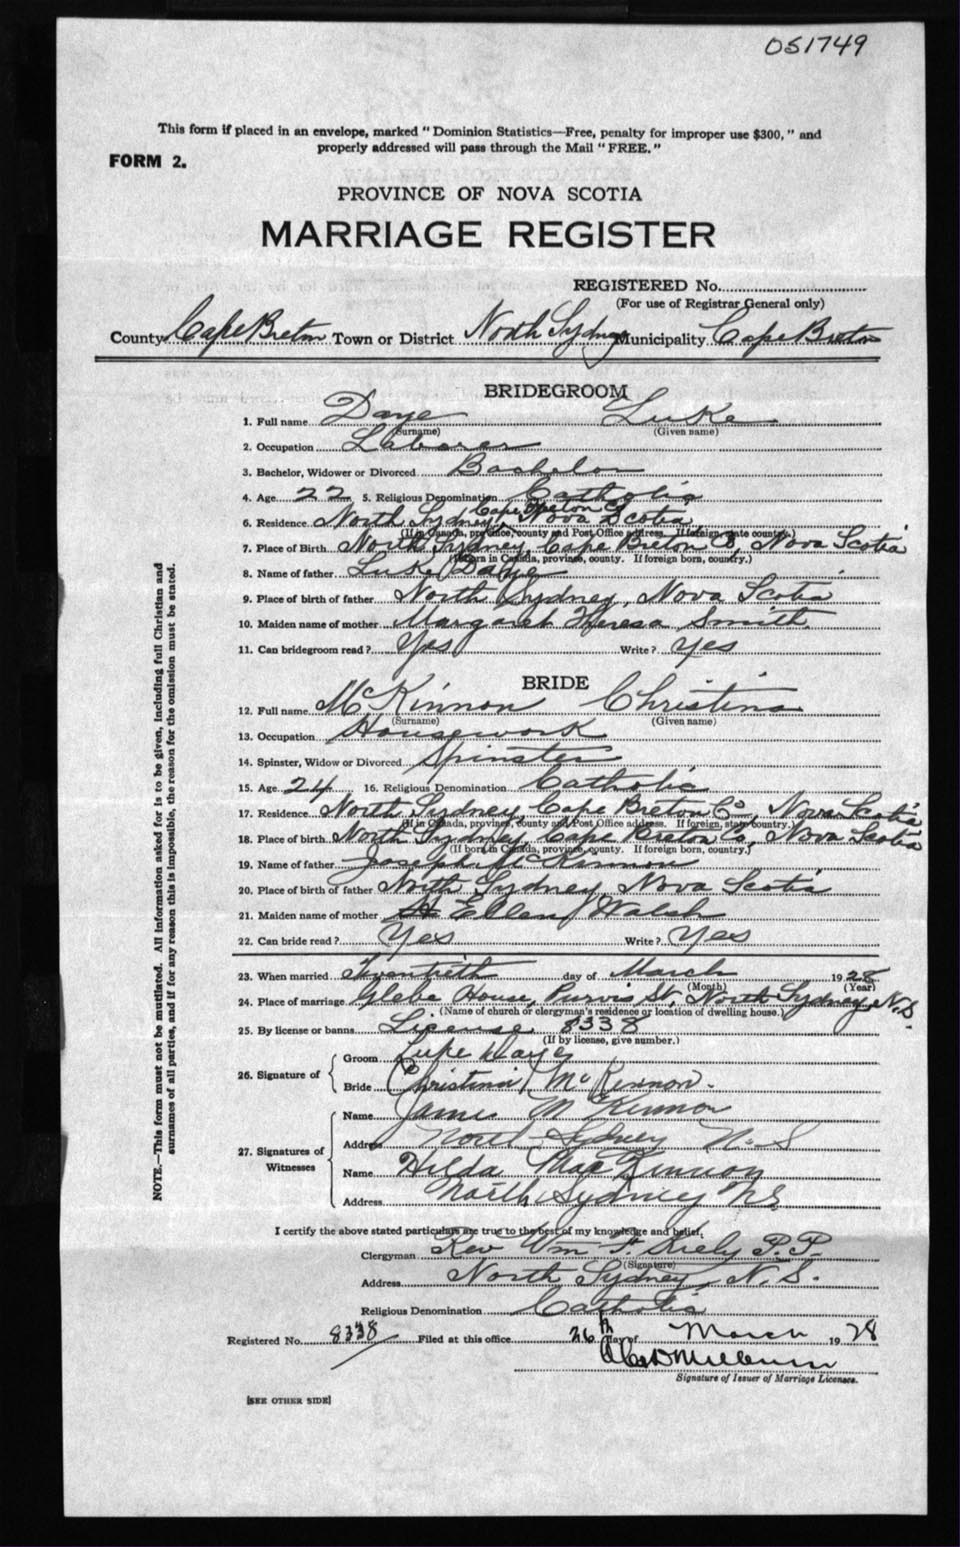 051749
This form if placed in an envelope, marked "Dominion Statistics—Free, penalty for improper use $300," and
properly addressed will pass through the Mail "FREE."
FORM 2.
PROVINCE OF NOVA SCOTIA
MARRIAGE REGISTER
REGISTERED No.
(For use of Registrar General only)
County Cape Breton Town or District North Sydney Municipality Cape Breton
BRIDEGROOM
1. Full name Daye Luke
(Surname) (Given name)
2. Occupation Laborer
3. Bachelor, Widower or Divorced Bachelor
4. Age 22 5. Religious Denomination Catholic
6. Residence North Sydney, Cape Breton Co Nova Scotia
(If in Canada, province, county and Post Office address. If foreign, state country.)
7. Place of Birth North Sydney, Cape Breton Co, Nova Scotia
(If born in Canada, province, county. If foreign born, country.)
8. Name of father Luke Daye
9. Place of birth of father North Sydney, Nova Scotia
10. Maiden name of mother Margaret Theresa Smith
11. Can bridegroom read? Yes Write? Yes
BRIDE
12. Full name McKinnon Christina
(Surname) (Given name)
13. Occupation Housework
14. Spinster, Widow or Divorced Spinster
15. Age 24 16. Religious Denomination Catholic
17. Residence North Sydney, Cape Breton Co, Nova Scotia
(If in Canada, province, county and Post Office address. If foreign, state country.)
18. Place of birth North Sydney, Cape Breton Co, Nova Scotia
(If born in Canada, province, county. If foreign born, country.)
19. Name of father Joseph McKinnon
20. Place of birth of father North Sydney, Nova Scotia
21. Maiden name of mother Ellen Walsh
22. Can bride read? Yes Write? Yes
23. When married Twentieth day of March 1928
(Month) (Year)
24. Place of marriage Glebe House, Purvis St, North Sydney, N.S.
(Name of church or clergyman's residence or location of dwelling house.)
25. By license or banns License 8338
(If by license, give number.)
26. Signature of Groom Luke Daye
Bride Christina McKinnon.
27. Signatures of Witnesses Name James McKinnon
Address North Sydney N.S
Name Hilda MacKinnon
Address North Sydney N.S.
I certify the above stated particulars are true to the best of my knowledge and belief,
Clergyman Rev Wm F Kiely P.P.
(Signature)
Address North Sydney, N.S.
Religious Denomination Catholic
Registered No. 8338 Filed at this office 26th day of March 1928
Signature of Issuer of Marriage Licenses.
[SEE OTHER SIDE]
NOTE.—This form must not be mutilated. All information asked for is to be given, including full Christian and
surnames of all parties, and if for any reason this is impossible, the reason for the omission must be stated.